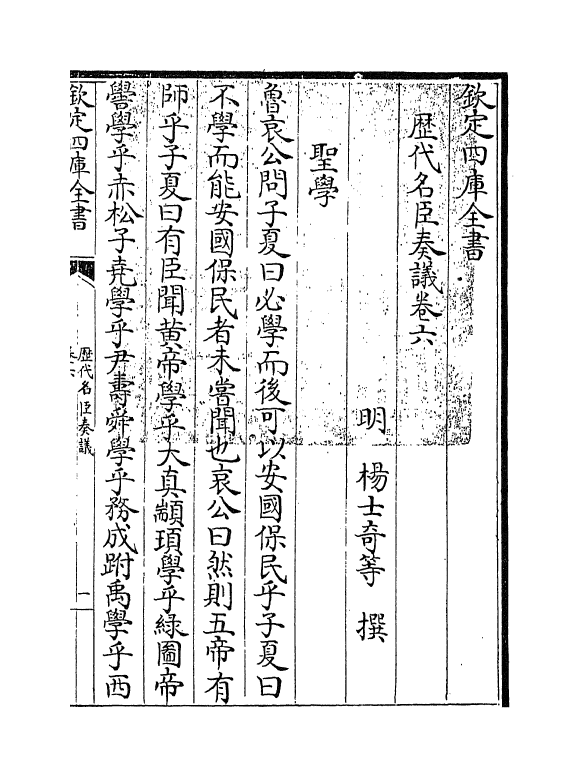 欽定四庫全書
歴代名臣奏議卷六
明 楊士奇等 撰
聖學
魯哀公問子夏曰必學而後可以安國保民乎子夏曰
不學而能安國保民者未嘗聞也哀公曰然則五帝有
師乎子夏曰有臣聞黄帝學乎大真顓頊學乎緑圖帝
嚳學乎赤松子堯學乎尹壽舜學乎務成跗禹學乎西
欽定四庫全書
歴代名臣奏議
卷六
一